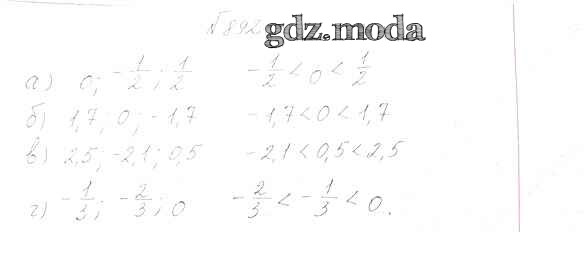 №892 gdz.moda
а) 0; -1/2; 1/2 -1/2 < 0 < 1/2
б) 1,7; 0; -1,7 -1,7 < 0 < 1,7
в) 2,5; -2,1; 0,5 -2,1 < 0,5 < 2,5
г) -1/3; -2/3; 0 -2/3 < -1/3 < 0.